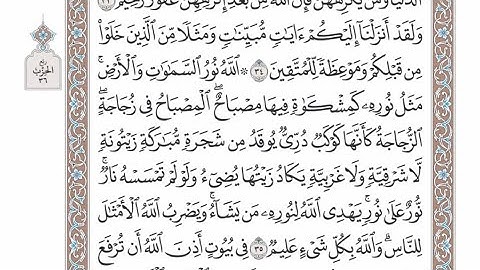 ٱلدُّنۡيَاۚ وَمَن يُكۡرِههُّنَّ فَإِنَّ ٱللَّهَ مِنۢ بَعۡدِ إِكۡرَٰهِهِنَّ غَفُورٞ رَّحِيمٞ ٣٣
وَلَقَدۡ أَنزَلۡنَآ إِلَيۡكُمۡ ءَايَٰتٖ مُّبَيِّنَٰتٖ وَمَثَلٗا مِّنَ ٱلَّذِينَ خَلَوۡاْ
مِن قَبۡلِكُمۡ وَمَوۡعِظَةٗ لِّلۡمُتَّقِينَ ٣٤ ۞ ٱللَّهُ نُورُ ٱلسَّمَٰوَٰتِ وَٱلۡأَرۡضِۚ
مَثَلُ نُورِهِۦ كَمِشۡكَوٰةٖ فِيهَا مِصۡبَاحٌۖ ٱلۡمِصۡبَاحُ فِي زُجَاجَةٍۖ
ٱلزُّجَاجَةُ كَأَنَّهَا كَوۡكَبٞ دُرِّيّٞ يُوقَدُ مِن شَجَرَةٖ مُّبَٰرَكَةٖ زَيۡتُونَةٖ
لَّا شَرۡقِيَّةٖ وَلَا غَرۡبِيَّةٖ يَكَادُ زَيۡتُهَا يُضِيٓءُ وَلَوۡ لَمۡ تَمۡسَسۡهُ نَارٞۚ
نُّورٌ عَلَىٰ نُورٖۚ يَهۡدِي ٱللَّهُ لِنُورِهِۦ مَن يَشَآءُۚ وَيَضۡرِبُ ٱللَّهُ ٱلۡأَمۡثَٰلَ
لِلنَّاسِۗ وَٱللَّهُ بِكُلِّ شَيۡءٍ عَلِيمٞ ٣٥ فِي بُيُوتٍ أَذِنَ ٱللَّهُ أَن تُرۡفَعَ
ربع
الحزب
٣٦